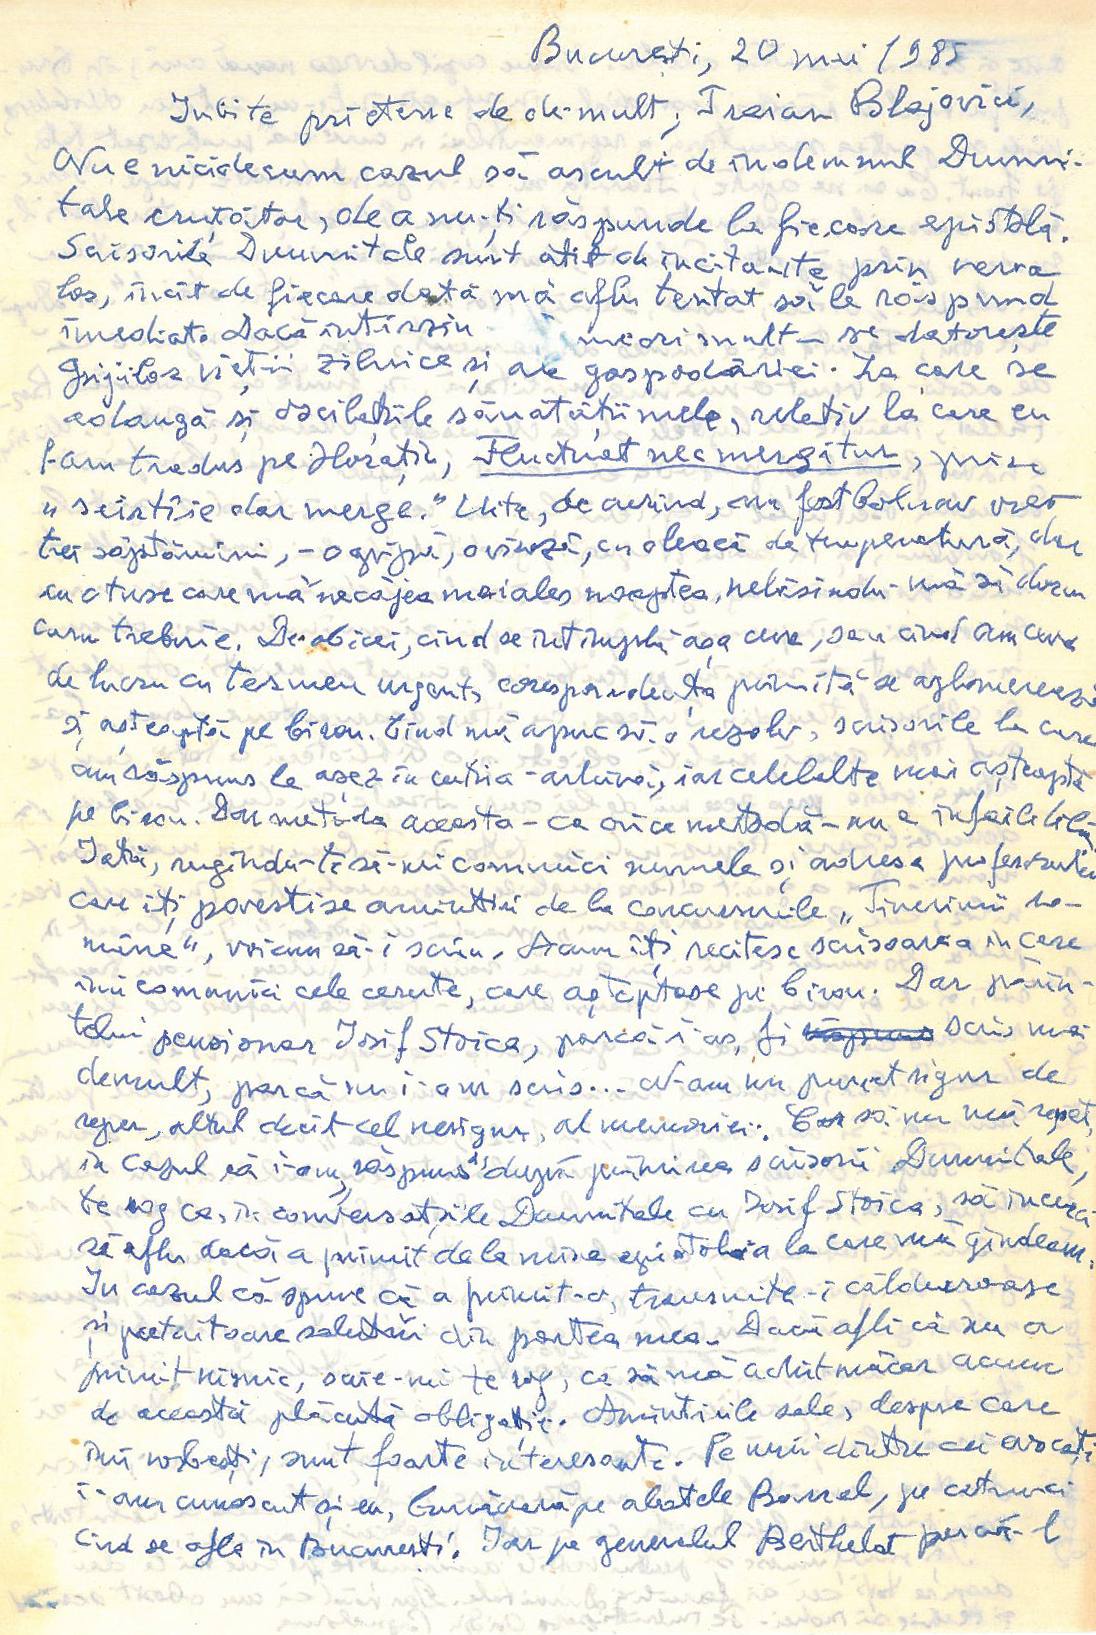 București, 20 mai 1985
Iubite prietene de de-mult, Traian Blajovici,
Nu e nicidecum cazul să ascult de îndemnul Dumni-
tale cruțător, de a nu-ți răspunde la fiecare epistolă.
Scisorile Dumnitale sunt atît de incitante prin verva
lor, încît de fiecare dată mă aflu tentat să le răspund
imediat. Dacă întîrzii mai mult – se datorește
grijilor vieții zilnice și ale gospodăriei. La care se
adaugă și oscilațiile sănătății mele, relativ la care eu
l-am tradus pe Horațiu, Fluctuat nec mergitur, prin
„scîrțîie dar merge." Uite, de curînd, am fost bolnav vreo
trei săptămîni, – o gripă, o viroză, cu oleacă de temperatură, dar
cu o tuse care mă necăjea mai ales noaptea, nelăsîndu-mă să dorm
cum trebuie. De obicei, cînd se întîmplă așa ceva, sau cînd am ceva
de lucru cu termen urgent, corespondența primită se aglomerează
și așteaptă pe birou. Cînd mă apuc să o rezolv, scisorile la care
am răspuns le așez în cutia-arhivă, iar celelalte mai așteaptă
pe birou. Dar metoda aceasta – ca orice metodă – nu e infailibilă.
Iată, rugîndu-te să-mi comunici numele și adresa profesorului
care îți povestise amintiri de la concursurile „Tinerimii ro-
mâne", voiam să-i scriu. Acum îți recitesc scisoarea in care
îmi comunici cele cerute, care așteptase pe birou. Dar părin-
telui pensionar Iosif Stoica, parcă i-aș fi scris mai
demult, parcă nu i-am scris... N-am un punct sigur de
reper, altul decît cel nesigur, al memoriei. Ca să nu mă repet,
în cazul că i-am răspuns după primirea scisorii Dumnitale,
te rog ca, în conversațiile Dumnitale cu Iosif Stoica, să încerci
să afli dacă a primit de la mine epistola la care mă gîndeam.
In cazul că spune că a primit-o, transmite-i călduroase
și prietenoase salutări din partea mea. Dacă afli că nu a
primit nimic, scrie-mi te rog, ca să mă achit măcar acum
de această plăcută obligație. Amintirile sale, despre care
îmi vorbești, sunt foarte interesante. Pe unii dintre cei evocați
i-am cunoscut și eu, bunăoară pe abatele Barral, pe atunci
cînd se afla în București. Iar pe generalul Berthelot parcă-l